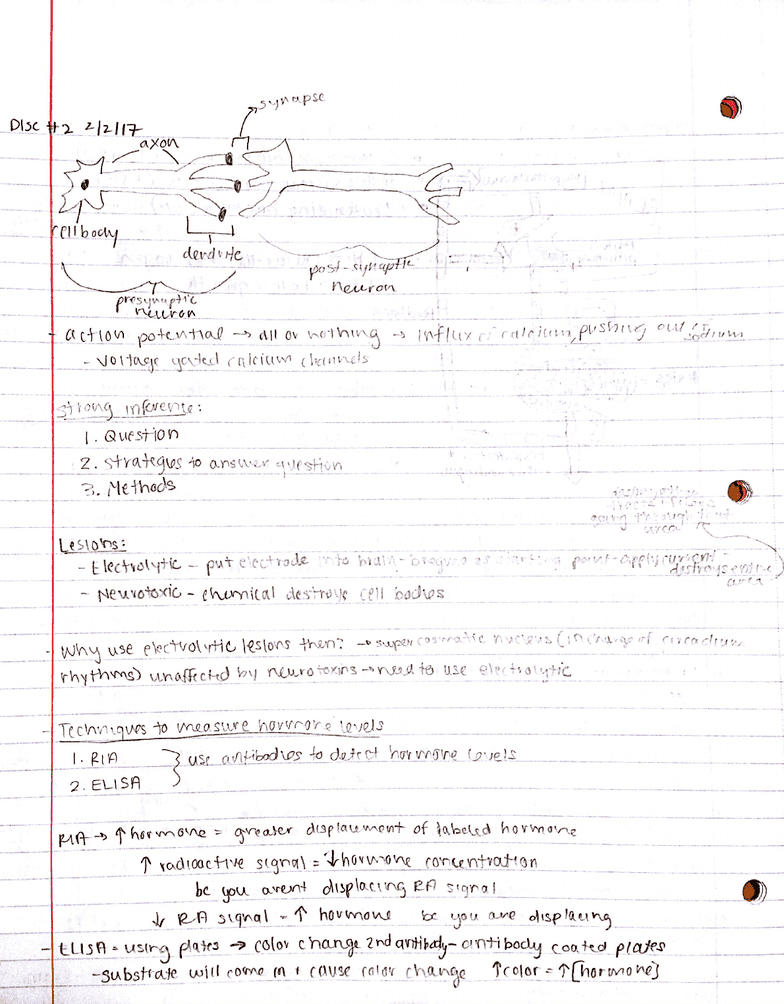 synapse
Disc #2 2/2/17
axon
cell body
dendrite
post-synaptic
neuron
presynaptic
neuron
- action potential → all or nothing → influx of calcium, pushing out of sodium
- voltage gated calcium channels
Strong inference:
1. Question
2. Strategies to answer question
3. Methods
going through that
area
Lesions:
- Electrolytic - put electrode into brain - as starting point - apply current -
destroys entire
area
- Neurotoxic - chemical destroys cell bodies
- Why use electrolytic lesions then? → supercosmatic nucleus (in charge of circadium
rhythms) unaffected by neurotoxins → need to use electrolytic
- Techniques to measure hormone levels
1. RIA
2. ELISA
use antibodies to detect hormone levels
RIA → ↑ hormone = greater displacment of labeled hormone
↑ radioactive signal = ↓ hormone concentration
bc you arent displacing RA signal
↓ RA signal = ↑ hormone bc you are displacing
- ELISA = using plates → color change 2nd antibody - antibody coated plates
- substrate will come in + cause color change ↑ color = ↑ [hormone]